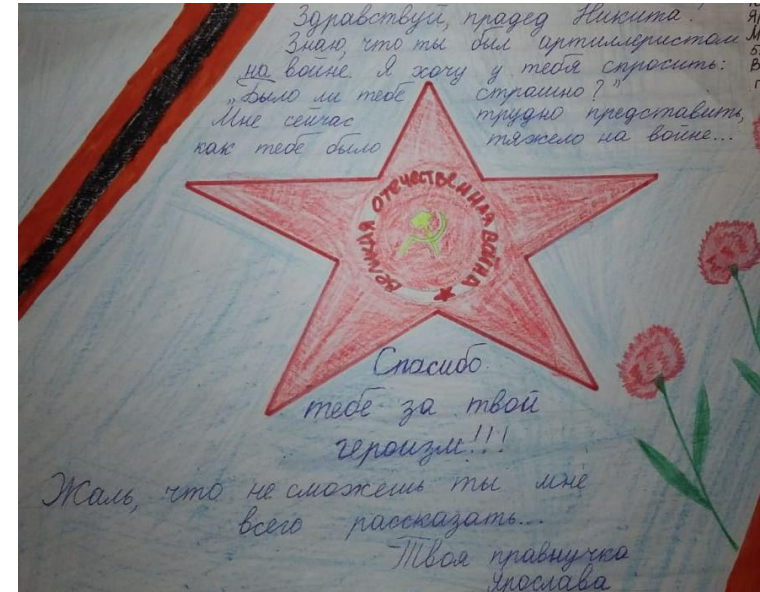 Здравствуй, прадед Никита!
Знаю, что ты был артиллеристом
на войне. Я хочу у тебя спросить:
"Было ли тебе страшно?"
Мне сейчас трудно представить,
как тебе было тяжело на войне...
ВЕЛИКАЯ ОТЕЧЕСТВЕННАЯ ВОЙНА
Спасибо
тебе за твой
героизм!!!
Жаль, что не сможешь ты мне
всего рассказать...
Твоя правнучка
Ярослава